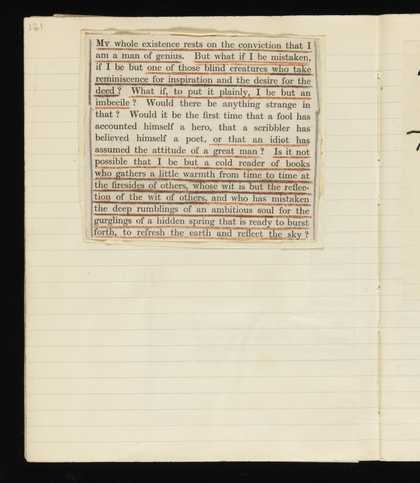 161
My whole existence rests on the conviction that I
am a man of genius. But what if I be mistaken,
if I be but one of those blind creatures who take
reminiscence for inspiration and the desire for the
deed? What if, to put it plainly, I be but an
imbecile? Would there be anything strange in
that? Would it be the first time that a fool has
accounted himself a hero, that a scribbler has
believed himself a poet, or that an idiot has
assumed the attitude of a great man? Is it not
possible that I be but a cold reader of books
who gathers a little warmth from time to time at
the firesides of others, whose wit is but the reflec-
tion of the wit of others, and who has mistaken
the deep rumblings of an ambitious soul for the
gurglings of a hidden spring that is ready to burst
forth, to refresh the earth and reflect the sky?